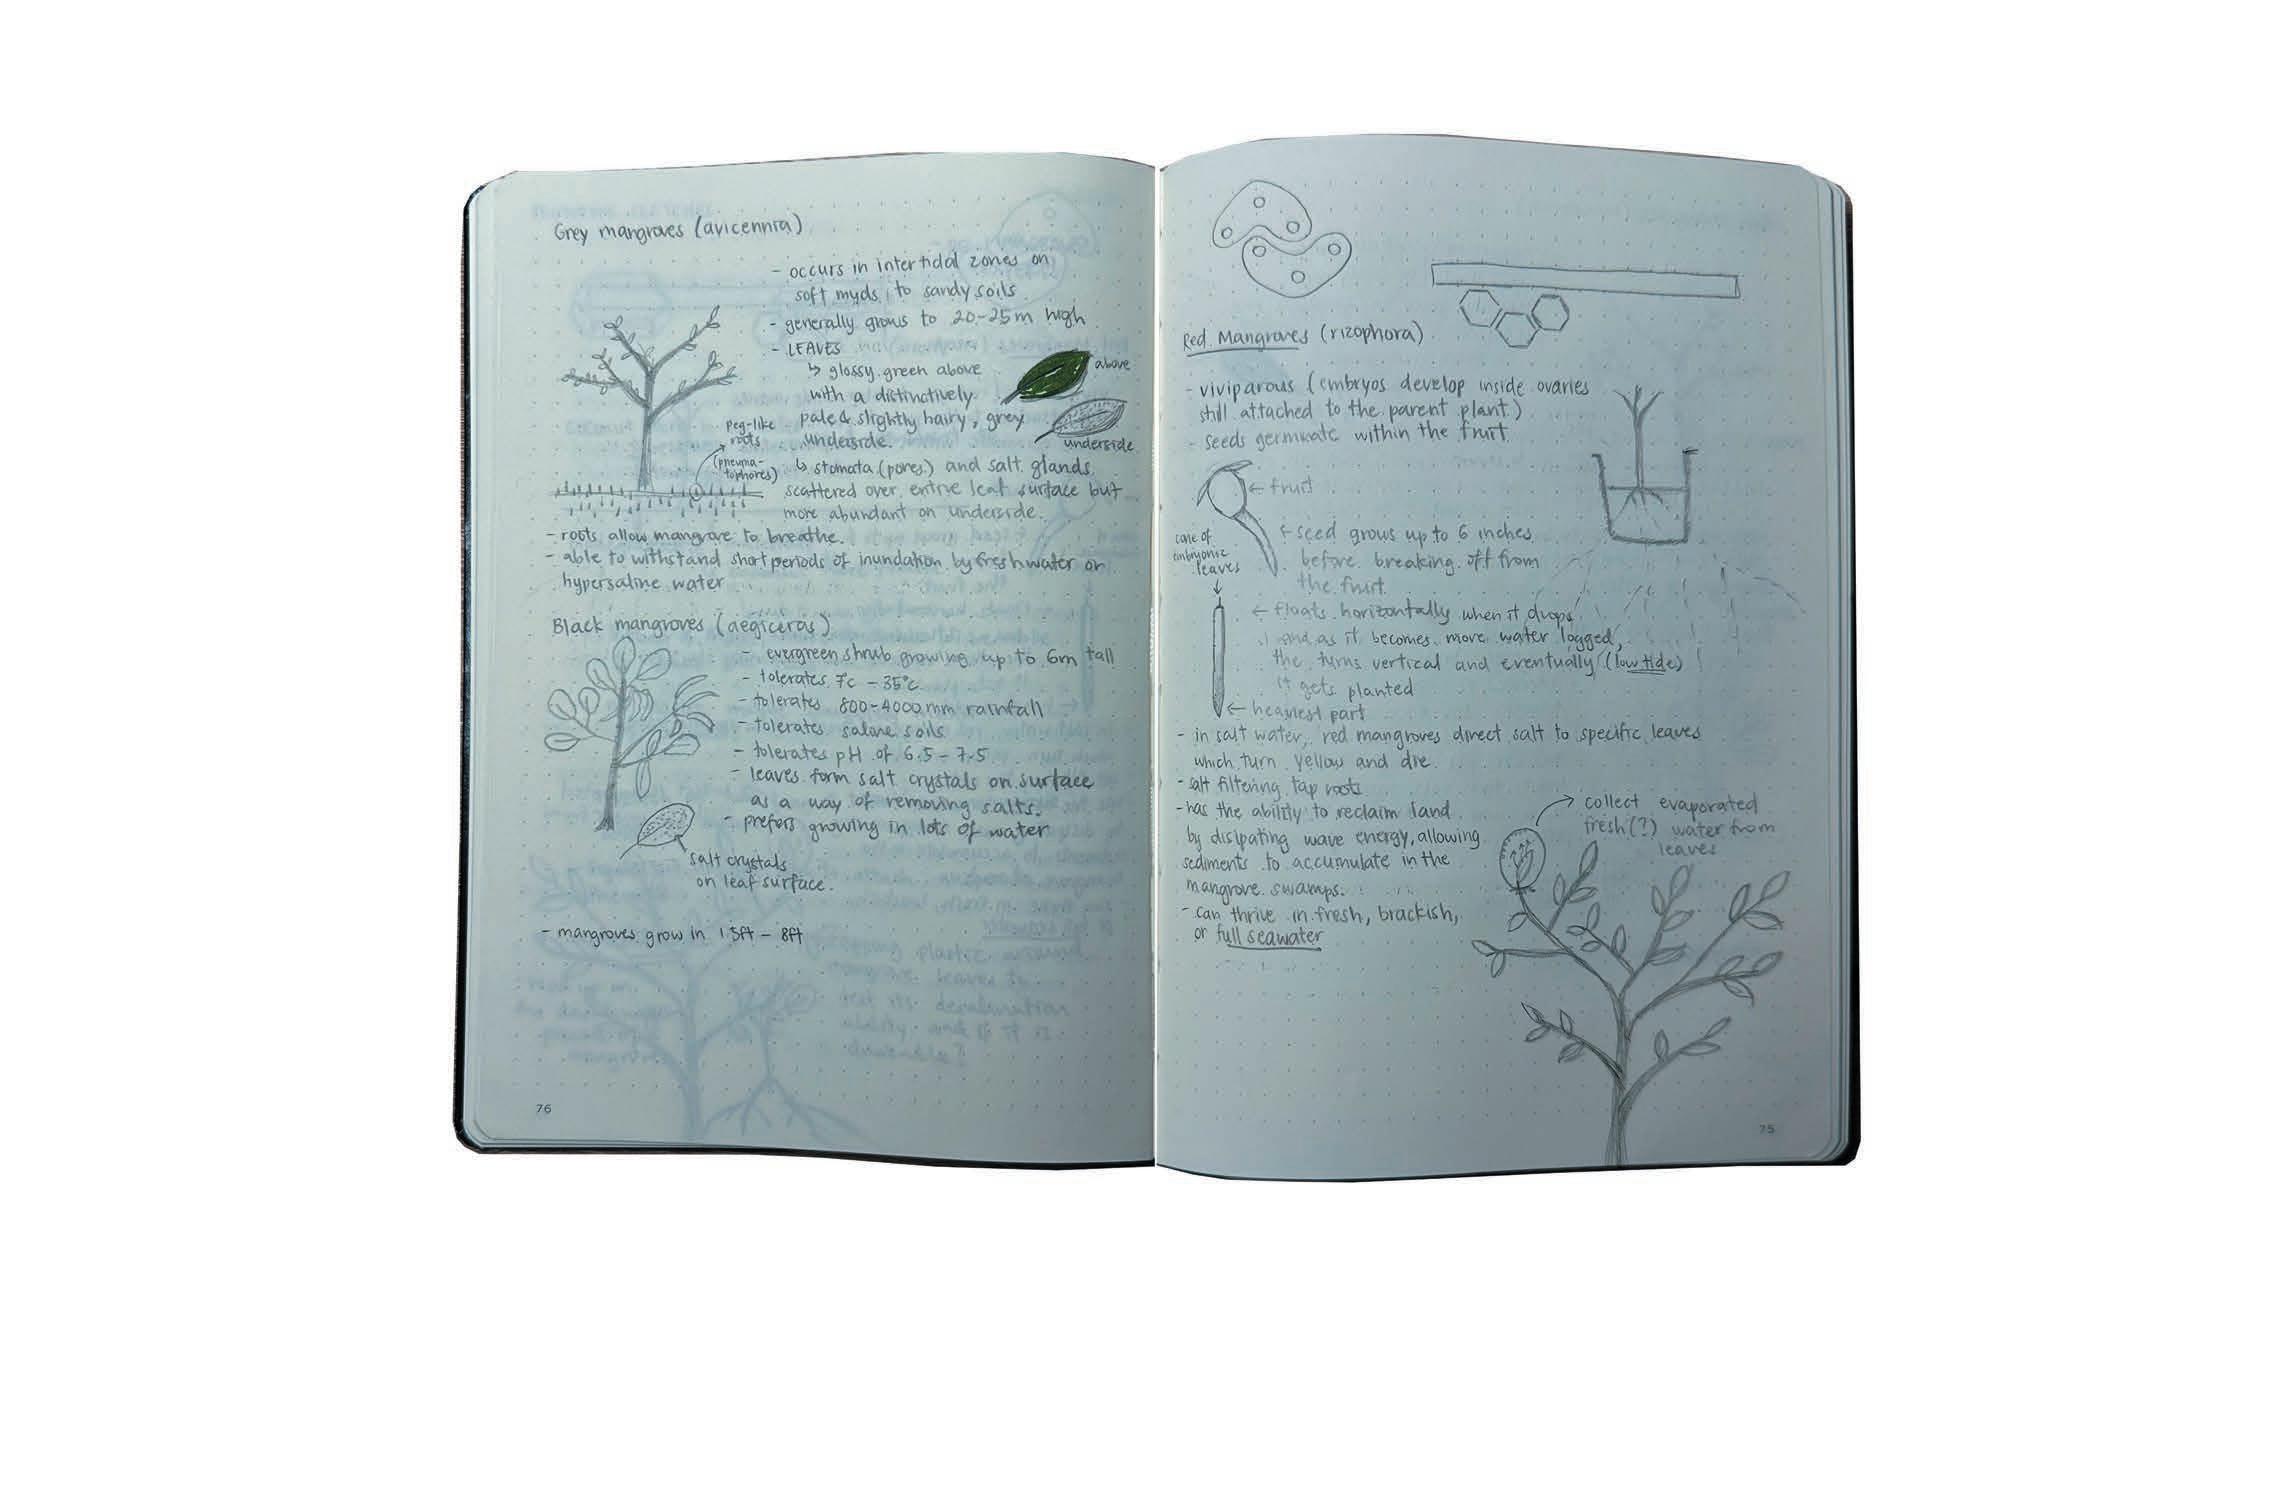 Grey mangroves (avicennia)
- occurs in intertidal zones on
soft myds, to sandy soils
- generally grows to 20-25m high
- LEAVES
↳ glossy green above
with a distinctively
pale & slightly hairy, grey
underside.
above
underside
↳ stomata (pores) and salt glands
scattered over entire leaf surface but
more abundant on underside.
peg-like
roots
(pneuma-
tophores)
- roots allow mangrove to breathe.
- able to withstand short periods of inundation by fresh water or
hypersaline water
Black mangroves (aegiceras)
- evergreen shrub growing up to 6m tall
- tolerates 7c - 35°c
- tolerates 800-4000 mm rainfall
- tolerates saline soils
- tolerates pH of 6.5 - 7.5
- leaves form salt crystals on surface
as a way of removing salts.
- prefers growing in lots of water
salt crystals
on leaf surface.
- mangroves grow in 1.5ft - 8ft
76
Red Mangroves (rizophora)
- viviparous (embryos develop inside ovaries
still attached to the parent plant)
- seeds germinate within the fruit
← fruit
← seed grows up to 6 inches
before breaking off from
the fruit
cone of
embryonic
leaves
← floats horizontally when it drops
and as it becomes more water logged,
the turns vertical and eventually (low tide)
it gets planted
← heaviest part
- in salt water, red mangroves direct salt to specific leaves
which turn yellow and die.
- salt filtering tap roots
- has the ability to reclaim land
by disipating wave energy, allowing
sediments to accumulate in the
mangrove swamps.
- can thrive in fresh, brackish,
or full seawater
collect evaporated
fresh(?) water from
leaves
75